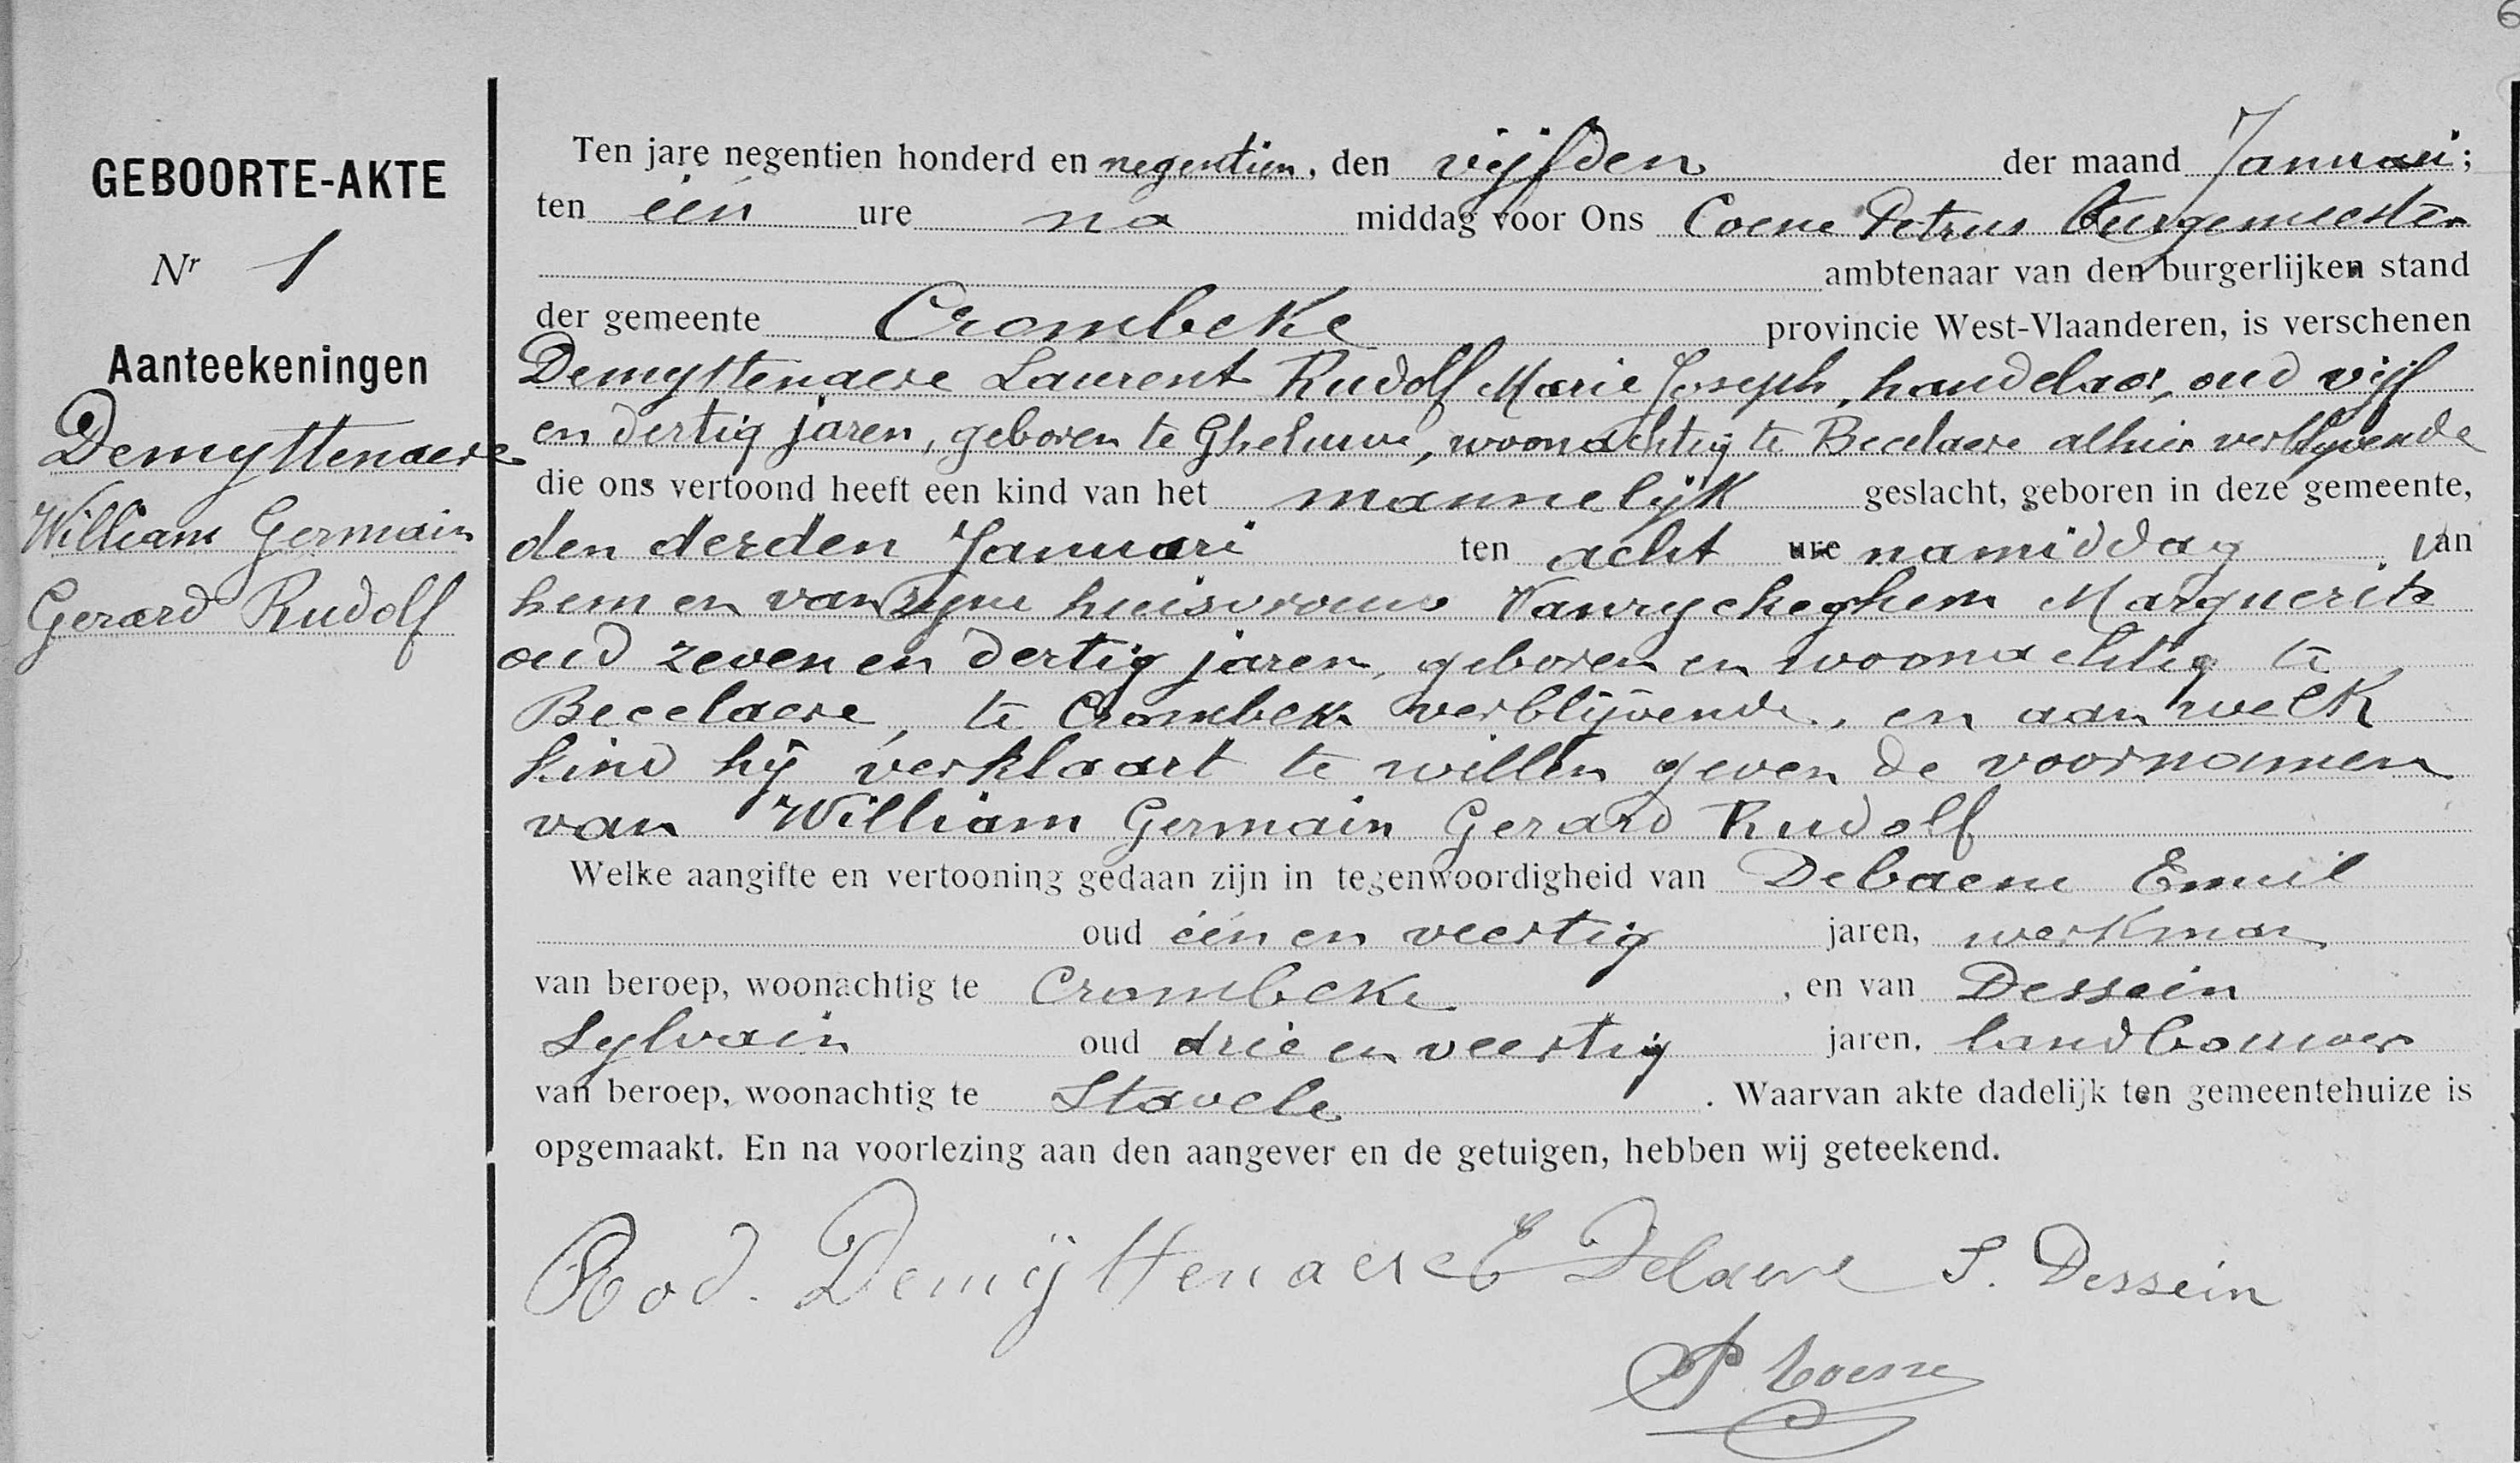 6
GEBOORTE-AKTE
Nr 1
Aanteekeningen
Demyttenaere
William Germain
Gerard Rudolf
Ten jare negentien honderd en negentien, den vijfden der maand Januari;
ten één ure na middag voor Ons Coene Petrus burgemeester
ambtenaar van den burgerlijken stand
der gemeente Crombeke provincie West-Vlaanderen, is verschenen
Demyttenaere Laurent Rudolf Marie Joseph, handelaar, oud vijf
en dertig jaren, geboren te Gheluwe, woonachtig te Becelaere alhier verblijvende
die ons vertoond heeft een kind van het mannelijk geslacht, geboren in deze gemeente,
den derden Januari ten acht ure namiddag van
hem en van zijne huisvrouw Vanryckeghem Marguerite
oud zeven en dertig jaren, geboren en woonachtig te
Becelaere, te Crombeke verblijvende, en aan welk
kind hij verklaart te willen geven de voornamen
van William Germain Gerard Rudolf
Welke aangifte en vertooning gedaan zijn in tegenwoordigheid van Debaene Emiel
oud één en veertig jaren, werkman
van beroep, woonachtig te Crombeke, en van Dessein
Sylvain oud drie en veertig jaren, landbouwer
van beroep, woonachtig te Stavele. Waarvan akte dadelijk ten gemeentehuize is
opgemaakt. En na voorlezing aan den aangever en de getuigen, hebben wij geteekend.
Rod. Demÿttenaere E S. Dessein
P. Coene